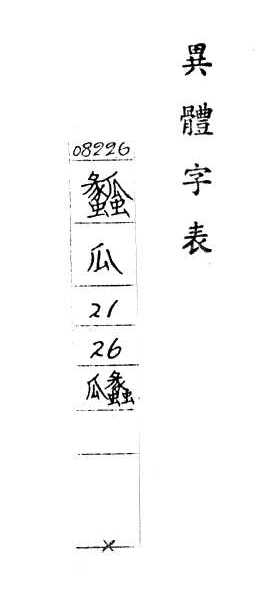 異體字表
08226
瓜
21
26